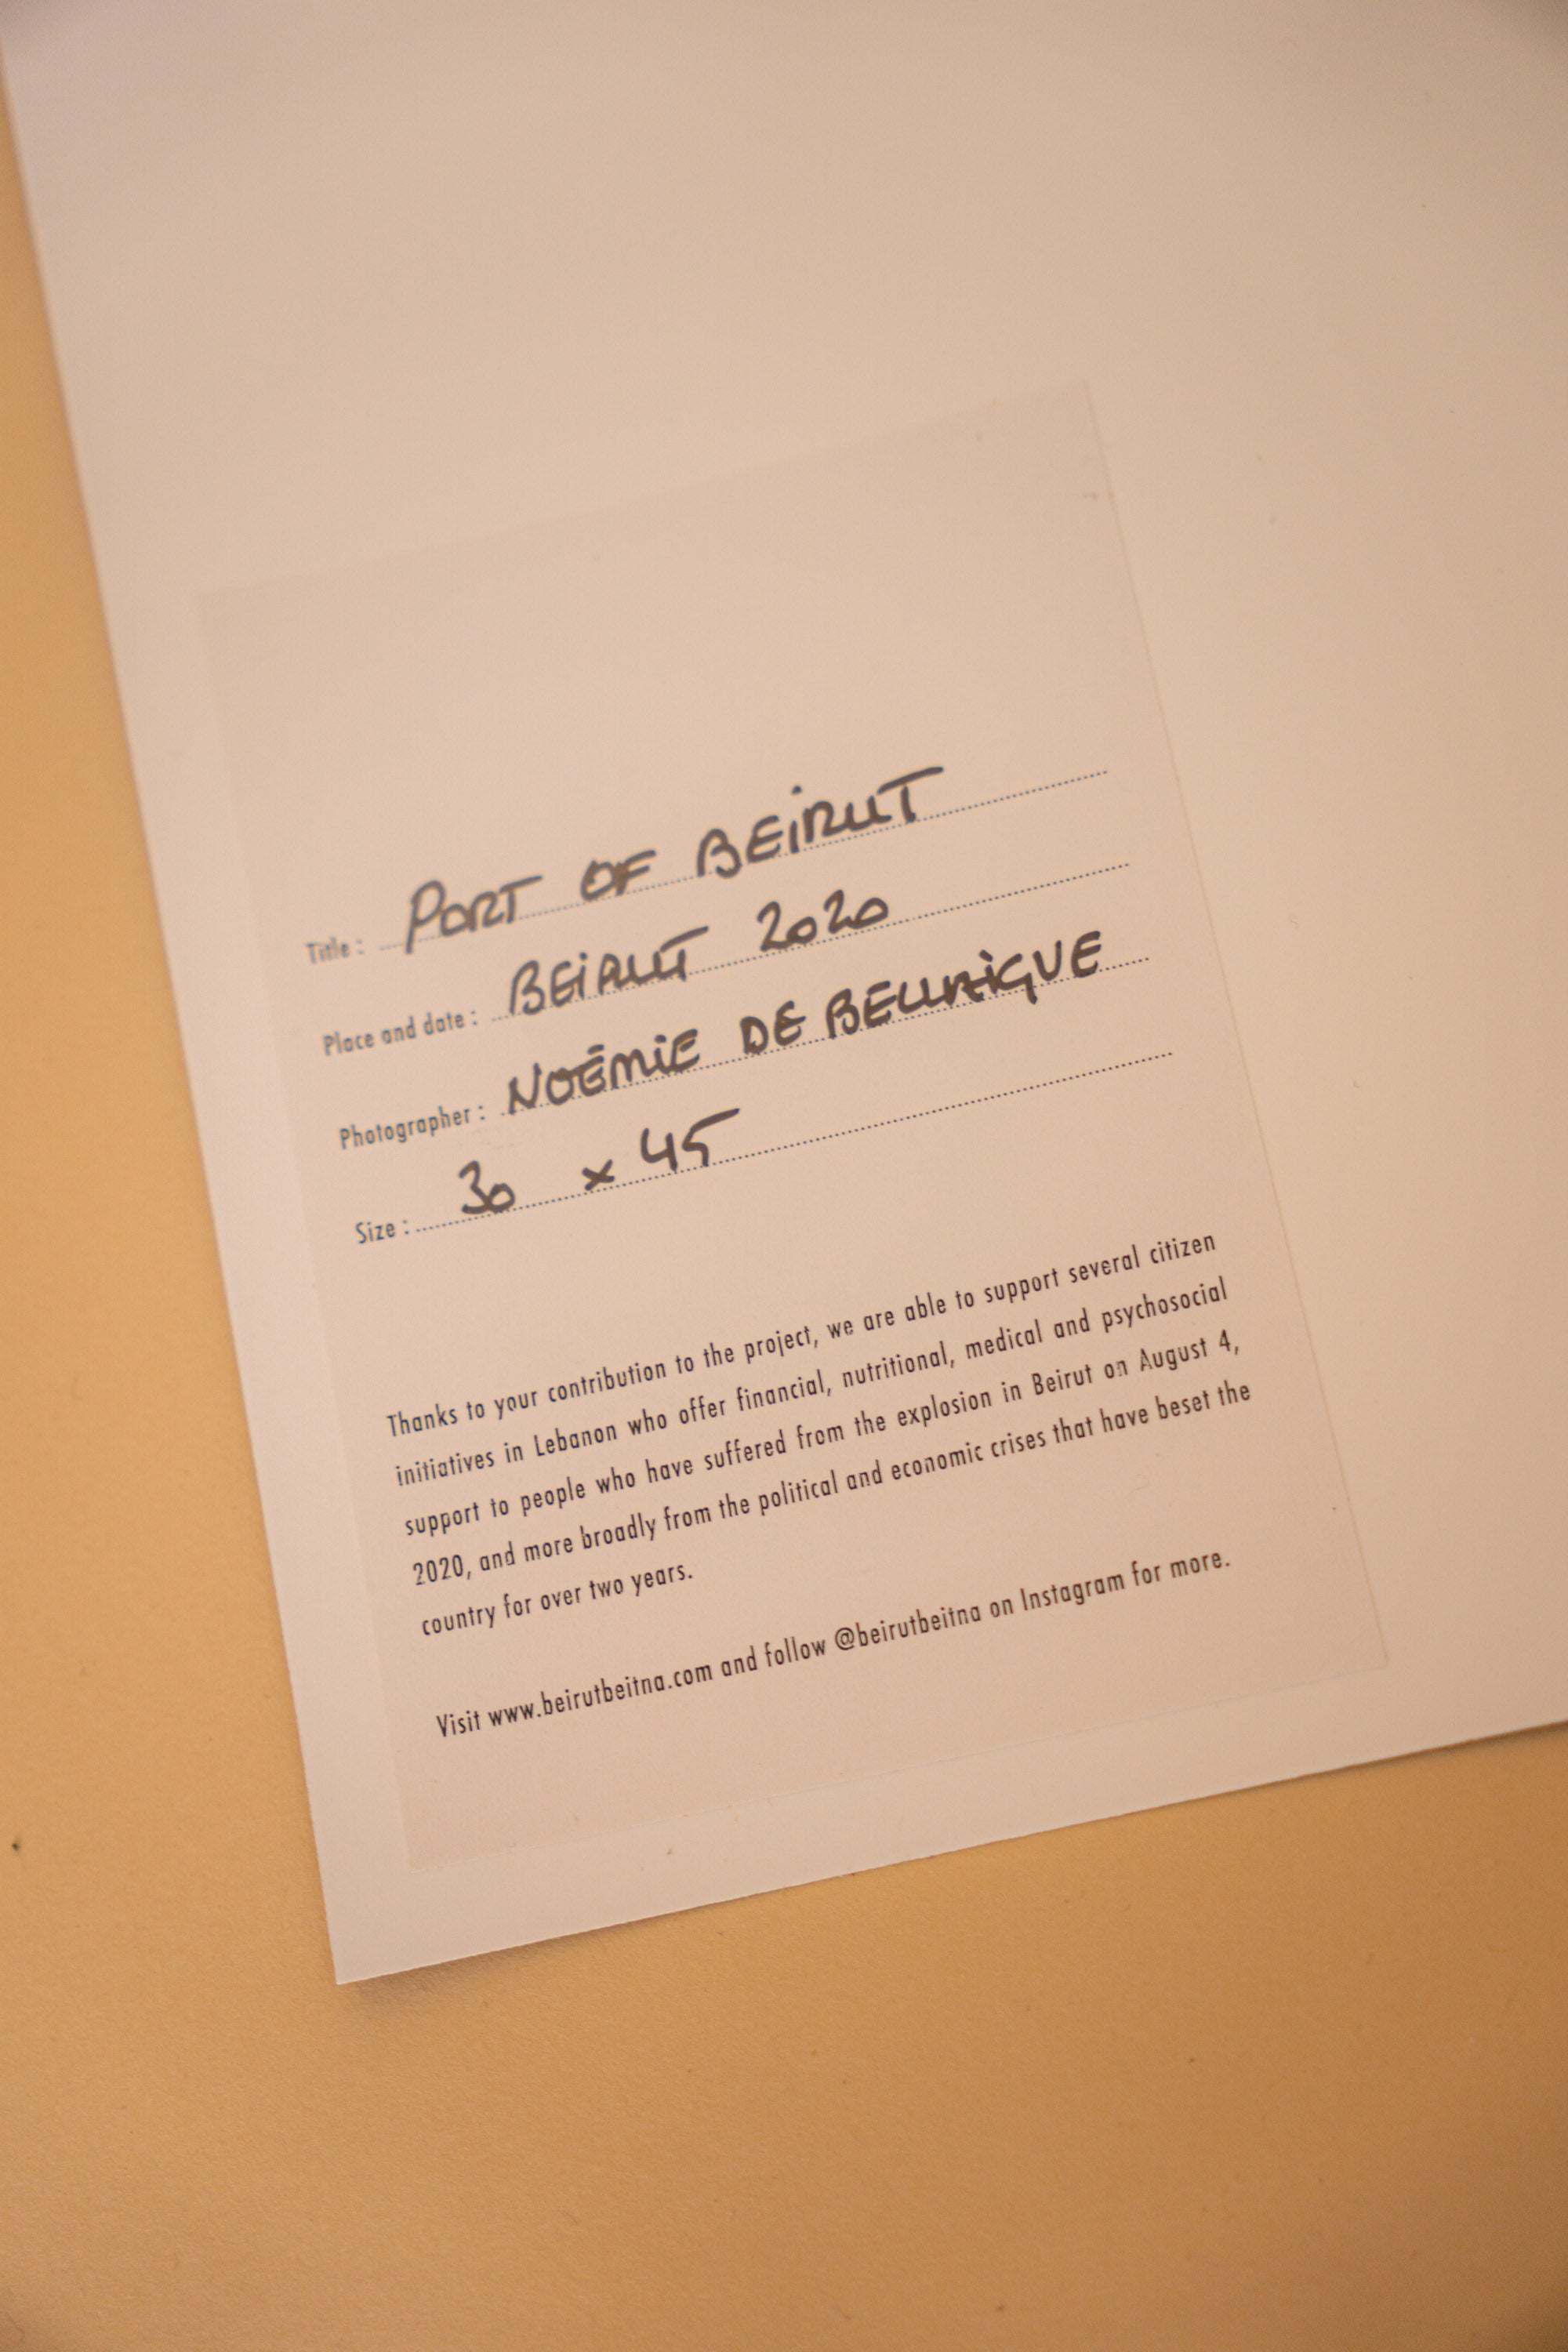 Title : PORT OF BEiRUT
Place and date : BEiRUT 2020
Photographer : NOÉMiE DE BEURiGUE
Size : 30 x 45
Thanks to your contribution to the project, we are able to support several citizen
initiatives in Lebanon who offer financial, nutritional, medical and psychosocial
support to people who have suffered from the explosion in Beirut on August 4,
2020, and more broadly from the political and economic crises that have beset the
country for over two years.
Visit www.beirutbeitna.com and follow @beirutbeitna on Instagram for more.